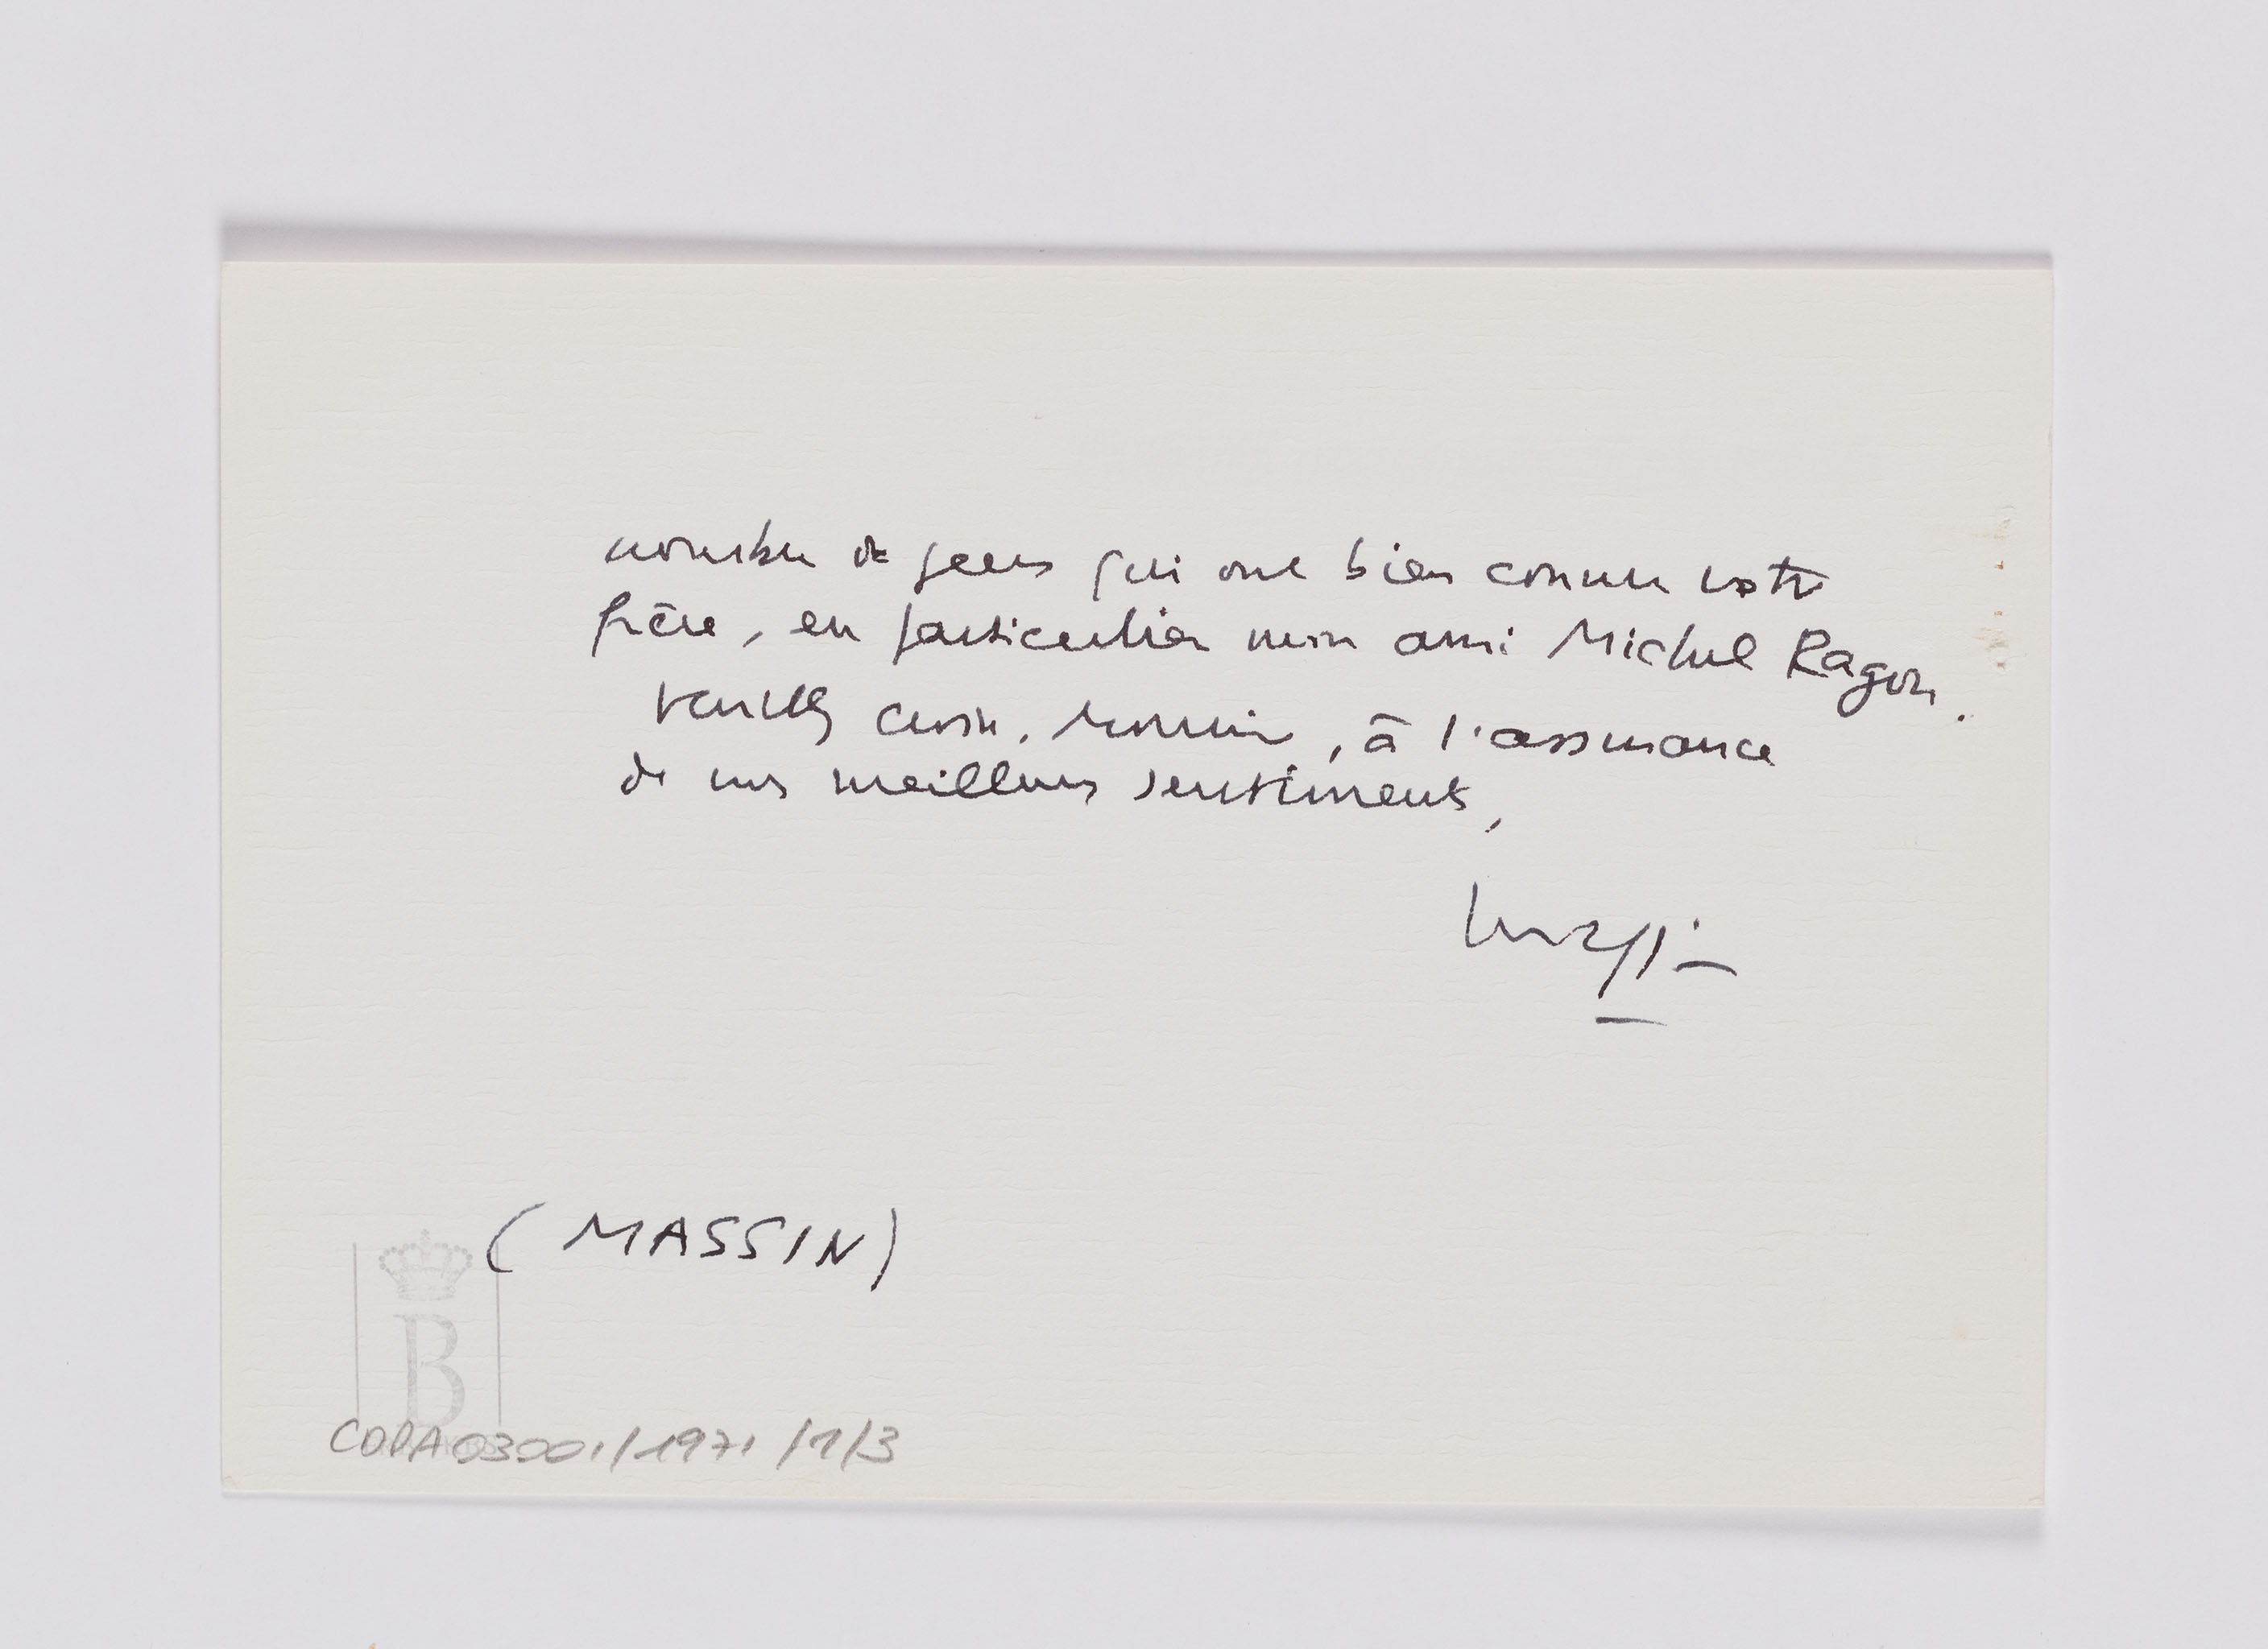 nombre de gens qui ont bien connu votre
frère, en particulier mon ami Michel Ragon.
Veuillez croire, Monsieur, à l'assurance
de mes meilleurs sentiments,
Massin
(MASSIN)
B
CDPA03001/1971/1/3